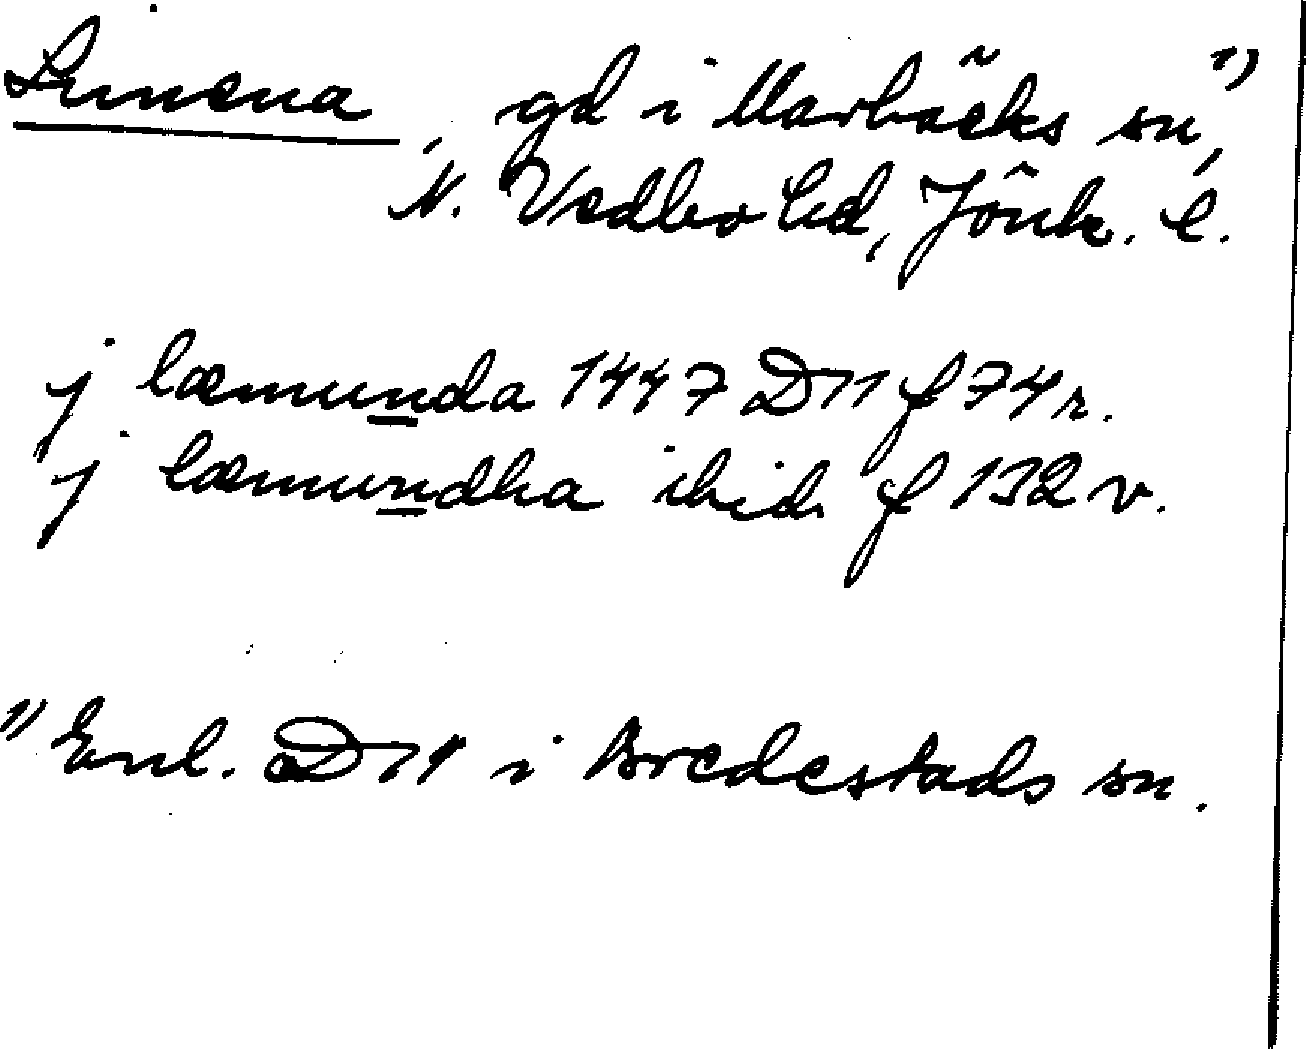 Limena, gd i Marbäcks sn,¹⁾
N. Vedbo hd, Jönk. l.
j læmunda 1447 D11 f 74 r.
j læmundha ibid. f 132 v.
¹⁾ Enl. D11 i Bredestads sn.